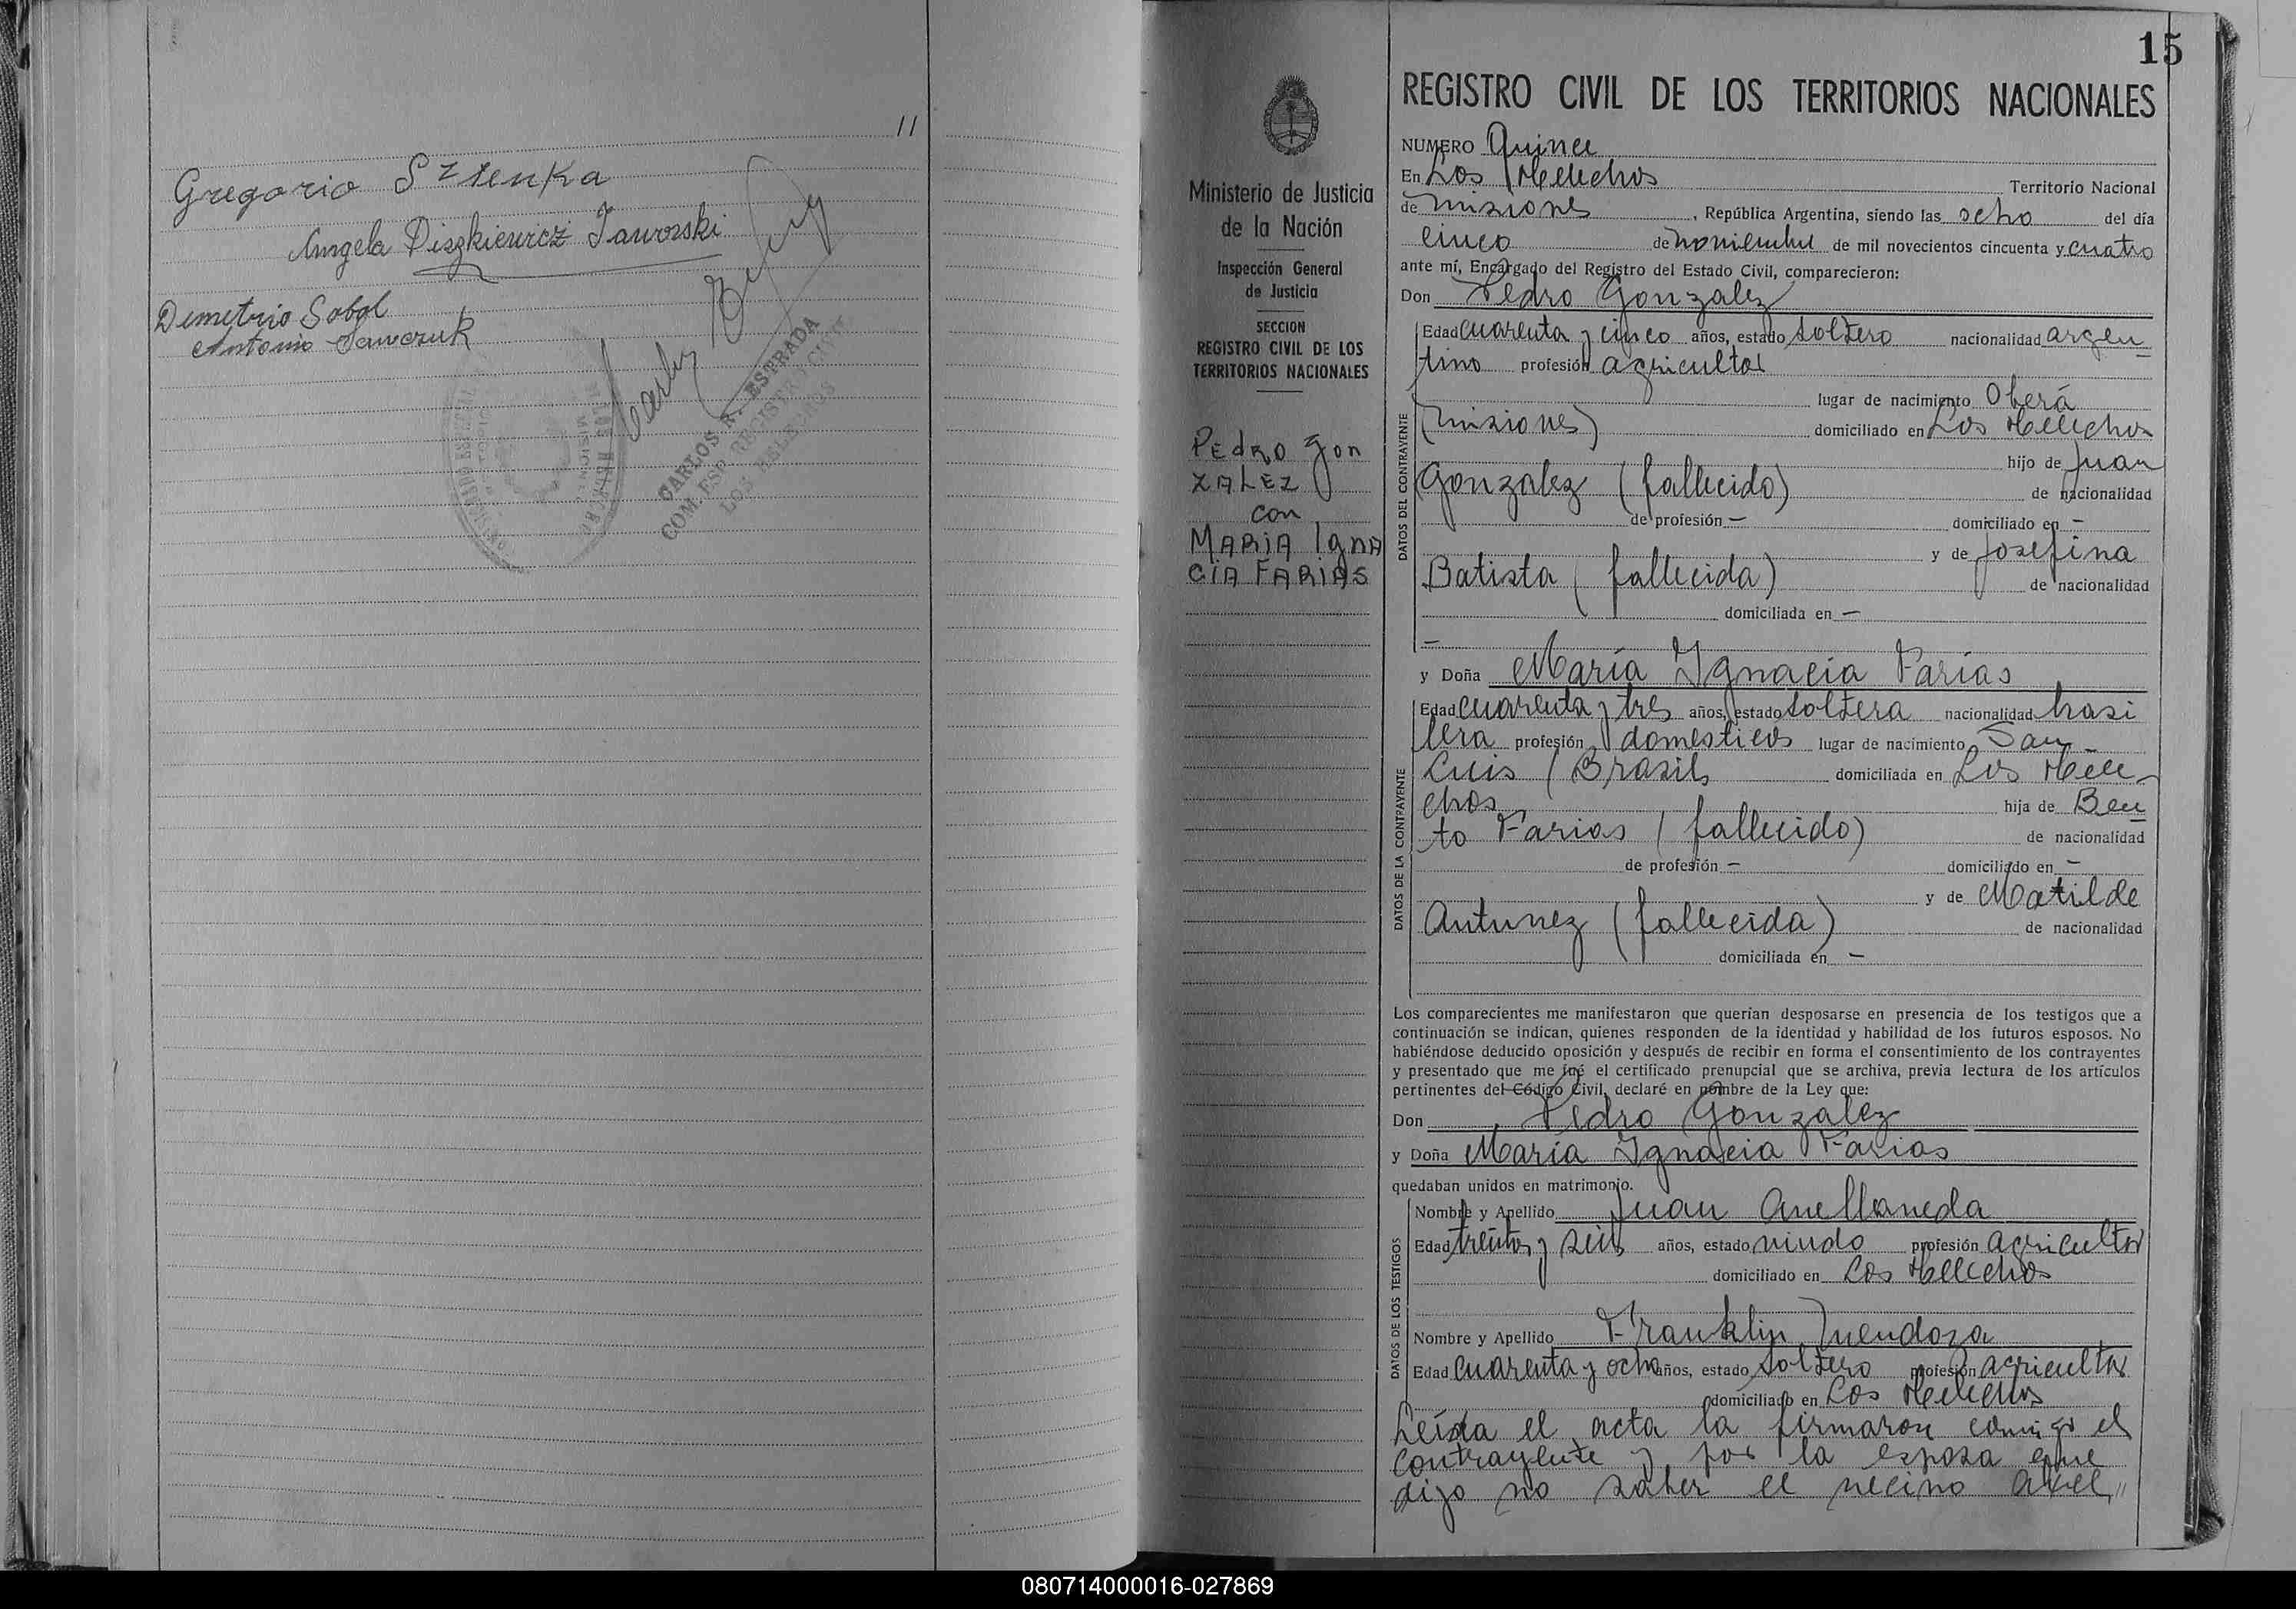 11
Gregorio Sztenka
Angela Diszkiewicz Jaworski
Demetrio Sobol
Antonio Sawczuk
CARLOS R. ESTRADA
15
REGISTRO CIVIL DE LOS TERRITORIOS NACIONALES
Ministerio de Justicia
de la Nación
Inspección General
de Justicia
SECCION
REGISTRO CIVIL DE LOS
TERRITORIOS NACIONALES
PEdRO gon
ZALEZ
con
MARiA Igna
CiA FARiAS
NUMERO Quince
En Los Helechos Territorio Nacional
de Misiones, República Argentina, siendo las ocho del día
cinco de noviembre de mil novecientos cincuenta y cuatro
ante mí, Encargado del Registro del Estado Civil, comparecieron:
Don Pedro Gonzalez
DATOS DEL CONTRAYENTE
Edad cuarenta y cinco años, estado soltero nacionalidad argen
tino profesión agricultor
lugar de nacimiento Oberá
(Misiones) domiciliado en Los Helechos
hijo de Juan
Gonzalez (fallecido) de nacionalidad
de profesión — domiciliado en —
y de Josefina
Batista (fallecida) de nacionalidad
domiciliada en —
—
y Doña María Ignacia Farías
DATOS DE LA CONTRAYENTE
Edad cuarenta y tres años, estado soltera nacionalidad brasi
lera profesión domesticos lugar de nacimiento San
Luis (Brasil) domiciliada en Los Hele-
chos hija de Ben
to Farias (fallecido) de nacionalidad
de profesión — domiciliado en —
y de Matilde
Antunez (fallecida) de nacionalidad
domiciliada en —
Los comparecientes me manifestaron que querían desposarse en presencia de los testigos que a
continuación se indican, quienes responden de la identidad y habilidad de los futuros esposos. No
habiéndose deducido oposición y después de recibir en forma el consentimiento de los contrayentes
y presentado que me fué el certificado prenupcial que se archiva, previa lectura de los artículos
pertinentes del Código Civil, declaré en nombre de la Ley que:
Don Pedro Gonzalez
y Doña María Ignacia Farias
quedaban unidos en matrimonio.
DATOS DE LOS TESTIGOS
Nombre y Apellido Juan Avellaneda
Edad treinta y seis años, estado viudo profesión agricultor
domiciliado en Los Helechos
Nombre y Apellido Franklin Mendoza
Edad cuarenta y ocho años, estado soltero profesión agricultor
domiciliado en Los Helechos
Leída el acta la firmaron conmigo el
contrayente y por la esposa que
dijo no saber el vecino Axel
080714000016-027869